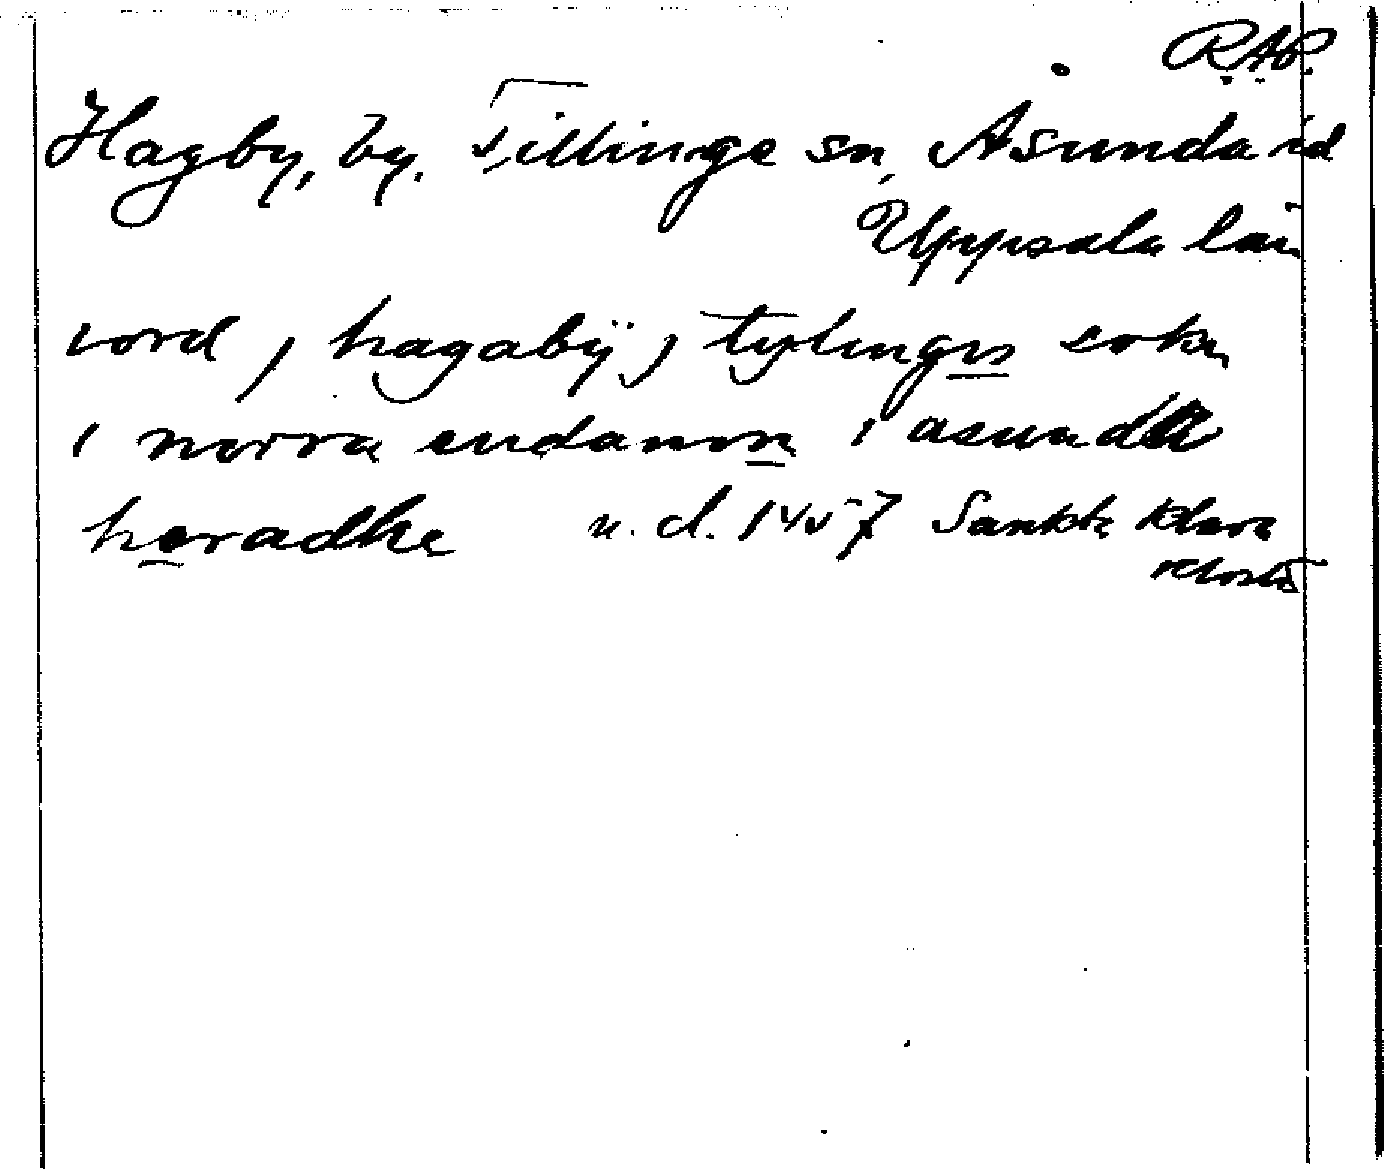 R.A.P.
Hagby, by. Tillinge sn, Åsunda hd
Uppsala län
iord j hagabÿ j tylingis sokn
i norra endanom i asunda
høradhe u.d. 1457 Sankta Klara
kloster